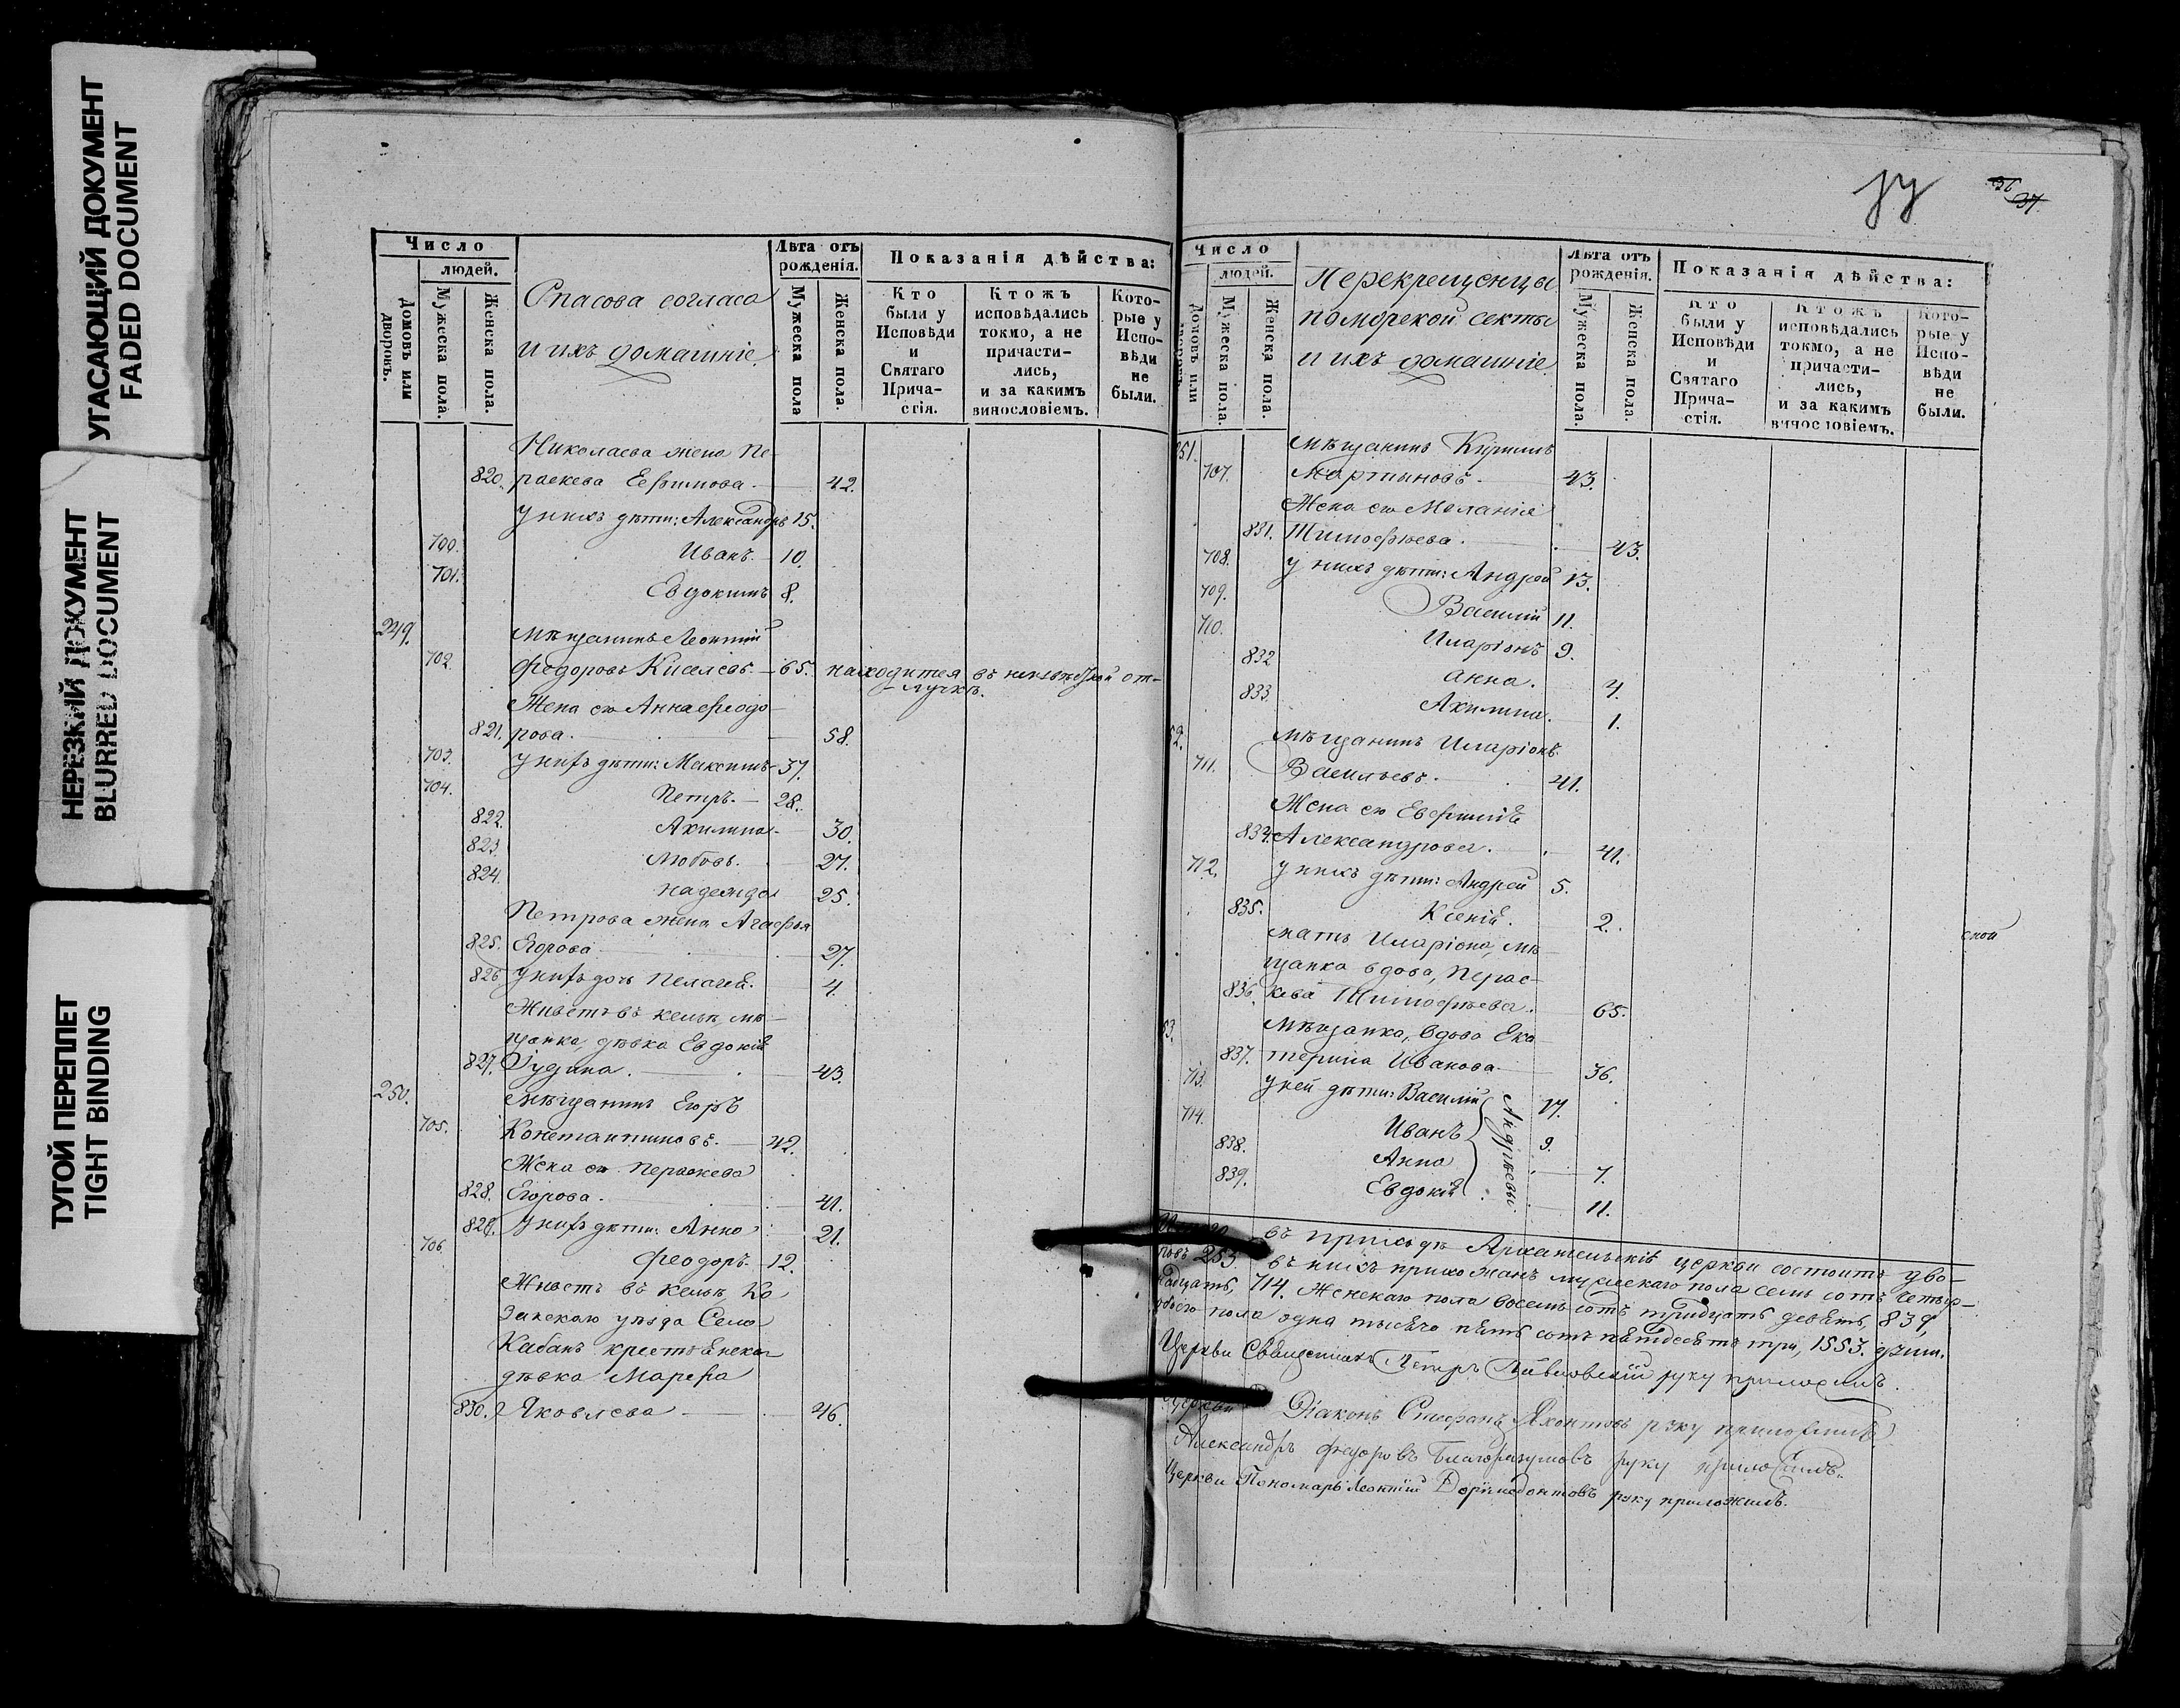 УГАСАЮЩИЙ ДОКУМЕНТ
FADED DOCUMENT
НЕРЕЗКИЙ ДОКУМЕНТ
BLURRED DOCUMENT
ТУГОЙ ПЕРЕПЛЕТ
TIGHT BINDING
Число
людей.
Домовъ или дворовъ.
Мужеска пола.
Женска пола.
Спасова согласа
и ихъ домашніе.
Лѣта отъ рожденія.
Мужеска пола
Женска пола.
Показанія дѣйства:
Кто были у Исповѣди и Святаго Прича-стія.
Ктожъ исповѣдались токмо, а не причасти-лись, и за какимъ винословіемъ.
Кото-рые у Испо-вѣди не были.
Николаева жена Пе-
820. раскева Ефимова. 42.
у нихъ дѣти: Александръ 15.
700. Иванъ. 10.
701. Евдокимъ 8.
249. мѣщанинъ Леонтий
702. Федоровъ Киселевъ. 65. находится въ неизвѣстной от-
лучкѣ.
Жена его Анна Феодо-
821. рова. 58.
703. у нихъ дѣти: Максимъ 37.
704. Петръ. 28.
822. Акилина. 30.
823. Любовь. 27.
824. Надежда 25.
Петрова жена Агафья
825. Егорова 27.
826 у нихъ дочь Пелагея. 4.
Живетъ въ кельѣ мѣ-
щанка, дѣвка Евдокія
827. Гудина. 43.
250. мѣщанинъ Егоръ
705. Константиновъ. 42.
Жена его Пераскева
828. Егорова. 41.
829. у нихъ дѣти: Анна 21.
706. Феодоръ. 12.
Живетъ въ кельѣ, Ка
занскаго уѣзда Села
Кабанъ крестьянская
дѣвка Марфа
830. Яковлева 46.
37
36 37.
Число
людей.
Домовъ или
Мужеска пола.
Женска пола.
Перекрещенцы
поморской секты
и ихъ домашніе.
Лѣта отъ рожденія.
Мужеска пола.
Женска пола.
Показанія дѣйства:
Кто были у Исповѣди и Святаго Прича-стія.
Ктожъ исповѣдались токмо, а не причасти-лись, и за какимъ винословіемъ.
Кото-рые у Испо-вѣди не были.
251. мѣщанинъ Кирилъ
707. Мартыновъ. 43.
Жена его Меланія
831. Тимофѣева. 43.
708. у нихъ дѣти: Андрей 13.
709. Василий 11.
710. Иларіонъ 9.
832 Анна. 4.
833. Акилина. 1.
52. мѣщанинъ Иларіонъ
711. Васильевъ. 41.
Жена его Евфимія
834. Александрова. 41.
712. у нихъ дѣти: Андрей 5.
835. Ксенія. 2.
мать Иларіона, мѣ-
щанка вдова, Перас-
836. кева Тимофѣева. 65.
53. мѣщанка, вдова Ека-
837. терина Иванова. 36.
713. у ней дѣти: Василий 17.
714. Иванъ 9.
838. Анна 7.
839. Евдокія 11.
Андрѣевы
въ приходѣ Архангельскія церкви состоитъ дво-
ровъ 253. въ нихъ прихожанъ мужескаго пола семь сотъ четыр-
надцать, 714. Женскаго пола восемь сотъ тридцать девять, 839,
обоего пола одна тысяча пять сотъ пятдесятъ три, 1553. душъ.
Церкви Священникъ Петръ руку приложилъ.
Церкви Діаконъ Стефанъ Яхонтовъ руку приложилъ
Александръ Федоровъ Благоразумовъ руку приложилъ.
Церкви Пономарь Леонтій Доримедонтовъ руку приложилъ.